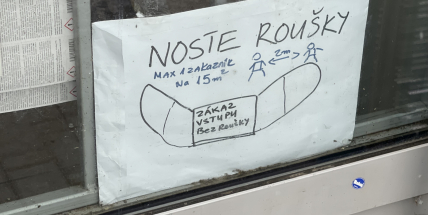 NOSTE ROUŠKY
MAX 1 ZAKAZNÍK
NA 15m²
2m
ZÁKAZ
VSTUPU
BEZ ROUŠKY